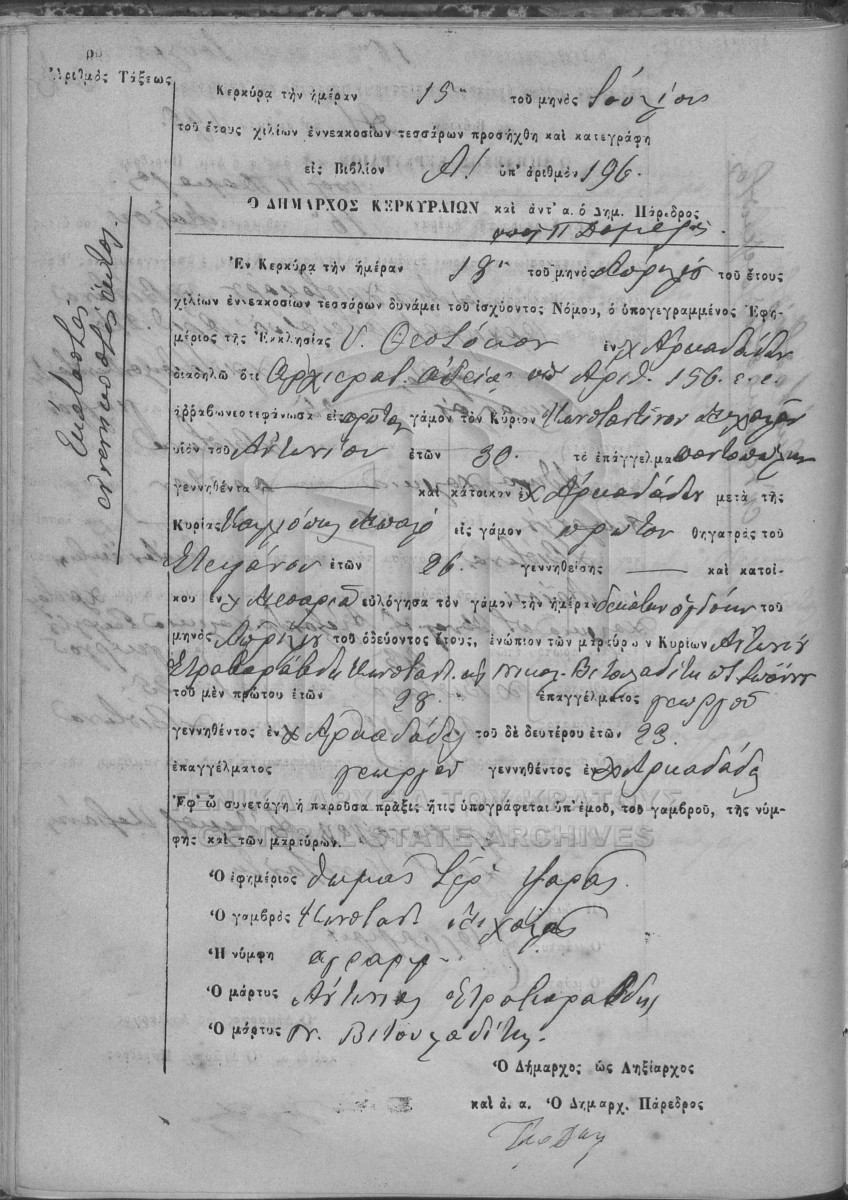 Ἀριθμὸς Τάξεως
Κερκύρᾳ τὴν ἡμέραν 15 τοῦ μηνὸς Ἰουλίου
τοῦ ἔτους χιλίων ἐννεακοσίων τεσσάρων προσήχθη καὶ κατεγράφη
εἰς Βιβλίον Α! ὑπ' ἀριθμὸν 196.
Ὁ ΔΗΜΑΡΧΟΣ ΚΕΡΚΥΡΑΙΩΝ καὶ ἀντ' α. ὁ Δημ. Πάρεδρος
Ἑκατοστὸς
ἐνενηκοστὸς ἕκτος.
Ἐν Κερκύρᾳ τὴν ἡμέραν 18 τοῦ μηνὸς Ἀπριλίου τοῦ ἔτους
χιλίων ἐννεακοσίων τεσσάρων δυνάμει τοῦ ἰσχύοντος Νόμου, ὁ ὑπογεγραμμένος Ἐφη-
μέριος τῆς Ἐκκλησίας Υ. Θεοτόκου ἐν χ Ἀρκαδάδων
διαδηλῶ ὅτι Ἀρχιερατ. ἀδείᾳ ὑπ Ἀριθ. 156 ε. ε.
ἀρραβωνεστεφάνωσα εἰς πρῶτον γάμον τὸν Κύριον Κωνσταντῖνον
υἱὸν τοῦ Ἀντωνίου ἐτῶν 30. τὸ ἐπάγγελμα παντοπώλην
γεννηθέντα καὶ κάτοικον ἐν χ Ἀρκαδάδων μετὰ τῆς
Κυρίας Καλλιόπης εἰς γάμον πρῶτον θηγατρὸς τοῦ
Στεφάνου ἐτῶν 26. γεννηθείσης καὶ κατοί-
κου ἐν χ εὐλόγησα τὸν γάμον τὴν ἡμέραν δεκάτην ὀγδόην τοῦ
μηνὸς Ἀπριλίου τοῦ ὁδεύοντος ἔτους, ἐνώπιον τῶν μαρτύρων Κυρίων Ἀντωνίου
Κωνσταντ. καὶ Νικολ. Βιτουλαδίτη Ἰωάννου
τοῦ μὲν πρώτου ἐτῶν 28 ἐπαγγέλματος γεωργοῦ
γεννηθέντος ἐν χ Ἀρκαδάδες τοῦ δὲ δευτέρου ἐτῶν 23.
ἐπαγγέλματος γεωργοῦ γεννηθέντος ἐν χ Ἀρκαδάδες
Ἐφ' ᾧ συνετάγη ἡ παροῦσα πρᾶξις ἥτις ὑπογράφεται ὑπ' ἐμοῦ, τοῦ γαμβροῦ, τῆς νύμ-
φης καὶ τῶν μαρτύρων.
ΓΕΝΙΚΑ ΑΡΧΕΙΑ ΤΟΥ ΚΡΑΤΟΥΣ
GENERAL STATE ARCHIVES
Ὁ ἐφημέριος Θωμᾶς Ἱερ
Ὁ γαμβρὸς Κωνσταντ
Ἡ νύμφη ἀγράμμ
Ὁ μάρτυς Ἀντώνιος
Ὁ μάρτυς Ν. Βιτουλαδίτης.
Ὁ Δήμαρχος ὡς Ληξίαρχος
καὶ ἀ. α. Ὁ Δημαρχ. Πάρεδρος